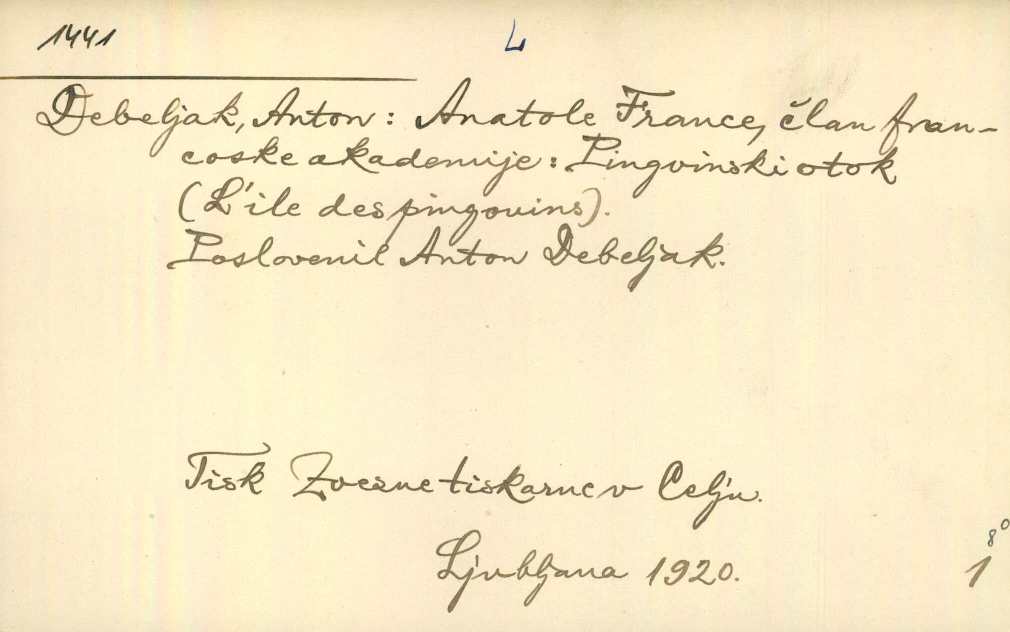 1441
L
Debeljak, Anton: Anatole France, član fran-
coske akademije: Pingvinski otok
(L'ile des pingouins).
Poslovenil Anton Debeljak.
Tisk Zvezne tiskarne v Celju.
Ljubljana 1920.
8°
1